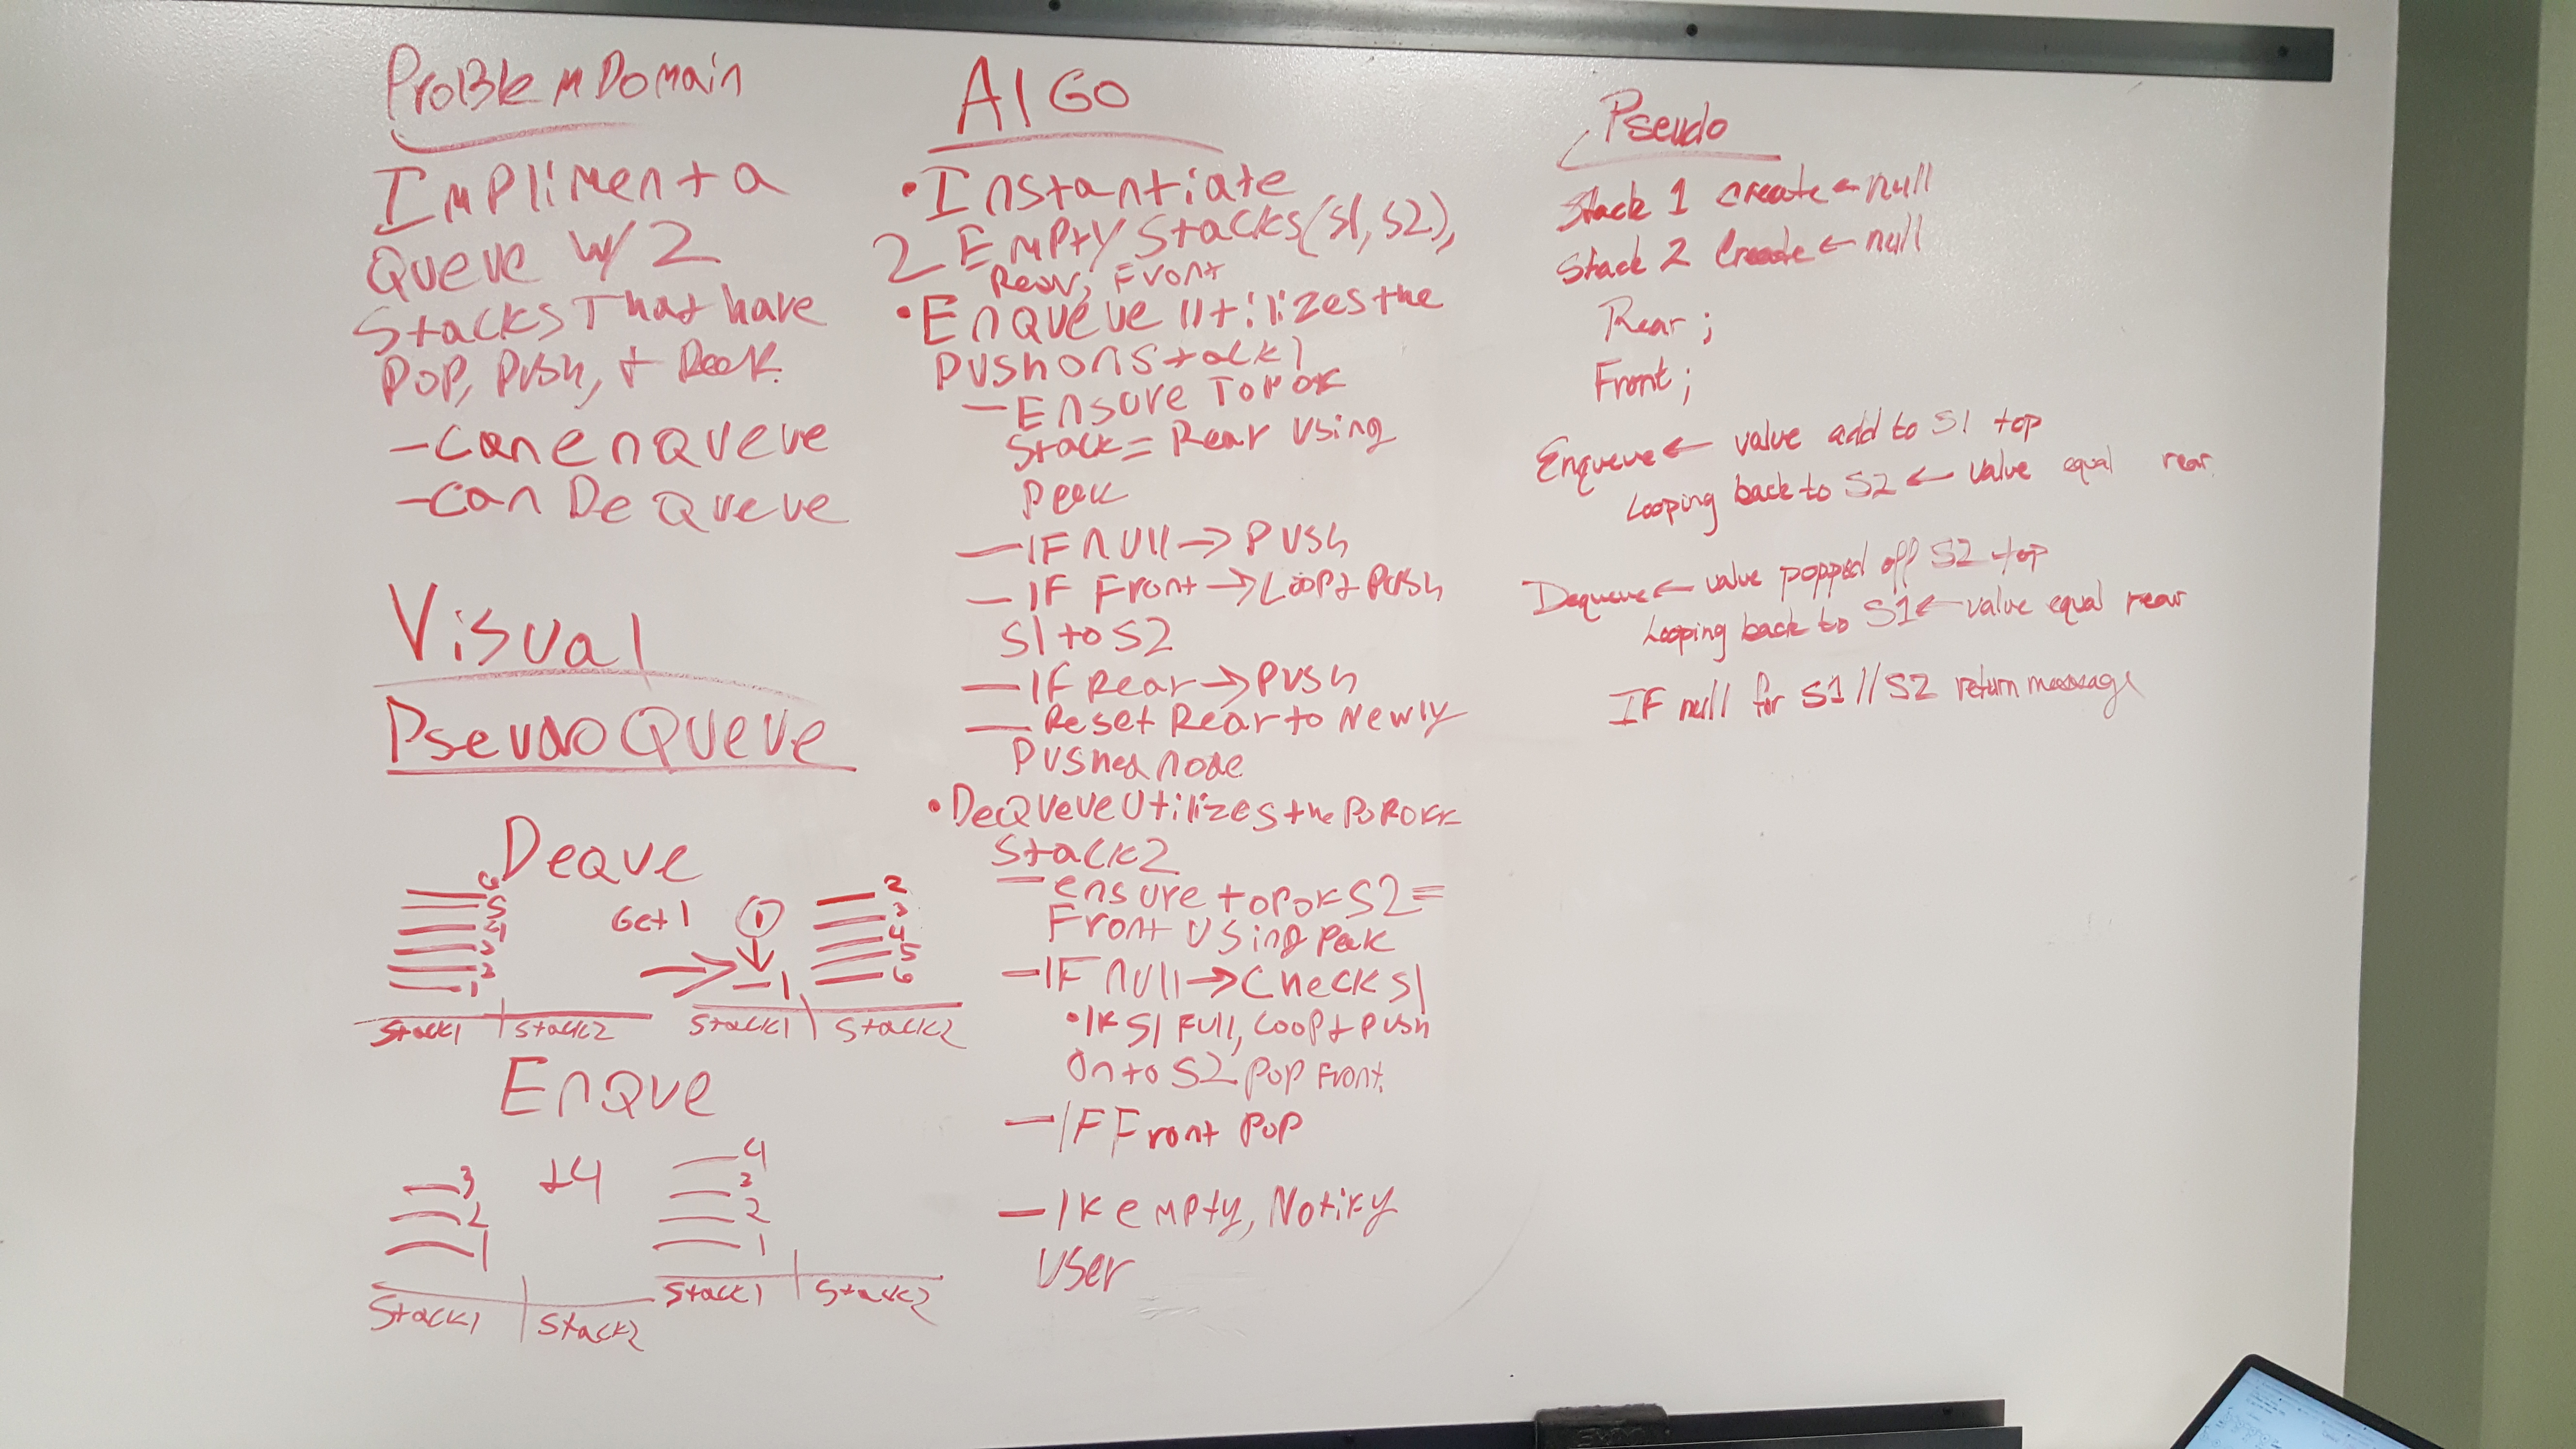 Problem Domain
Impliment a
Queue w/ 2
Stacks That have
Pop, Push, + Peek.
- Can enqueue
- Can DeQueue
Visual
PseudoQueue
Deque
6
5
4
3
2
1
Get 1
1
1
2
3
4
5
6
Stack1 Stack2
Stack1 Stack2
Enque
3
2
1
+4
4
3
2
1
Stack1 Stack2
Stack1 Stack2
AlGo
• Instantiate
2 Empty Stacks(S1, S2),
Rear, Front
• EnQueue Utilizes the
Push on Stack1
- Ensure Top of
Stack = Rear Using
Peek
- IF null → Push
- IF Front → Loop + Push
S1 to S2
- IF Rear → Push
- Reset Rear to Newly
Pushed node
• DeQueue Utilizes the Pop of
Stack2
- ensure top of S2 =
Front Using Peek
- IF null → Check S1
• If S1 Full, Loop + Push
Onto S2 Pop Front.
- IF Front Pop
- If empty, Notify
User
Pseudo
Stack 1 create ← null
Stack 2 Create ← null
Rear ;
Front ;
Enqueue ← value add to S1 top
Looping back to S2 ← value equal rear.
Dequeue ← value popped off S2 top
Looping back to S1 ← value equal rear
IF null for S1 // S2 return message